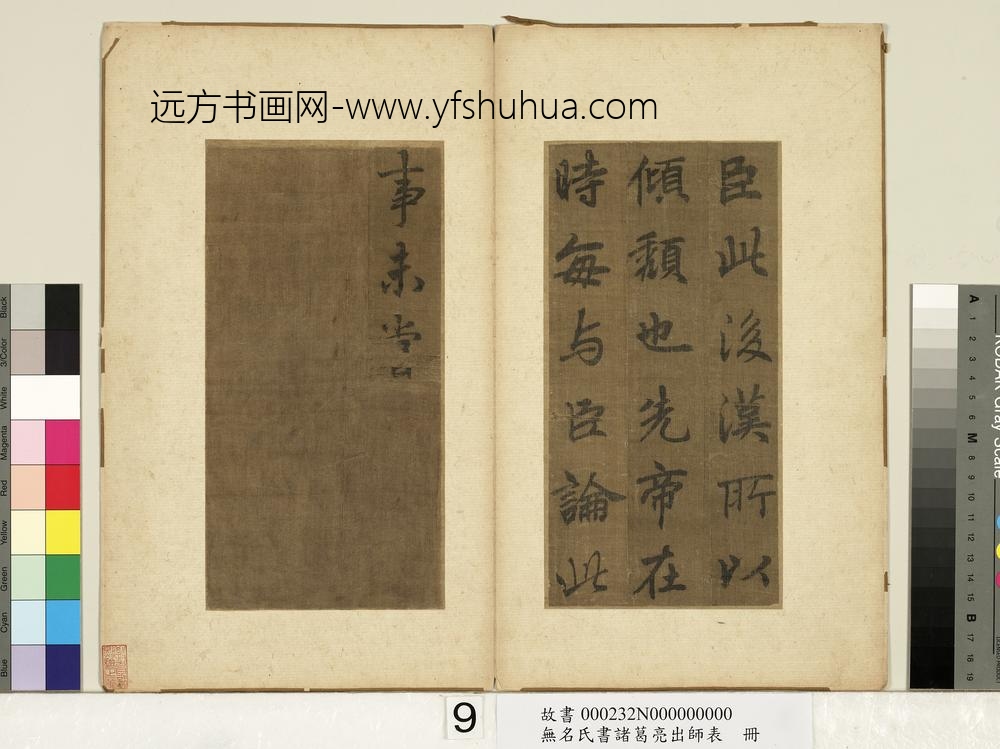 远方书画网-www.yfshuhua.com
臣此後漢所以
傾頹也先帝在
時每与臣論此
事未嘗
Black
3/Color
White
Magenta
Red
Yellow
Green
Cyan
Blue
A
1
2
3
4
5
6
M
8
9
10
11
12
13
14
15
B
17
18
19
KODAK Gray Scale
9
故書 000232N000000000
無名氏書諸葛亮出師表 冊